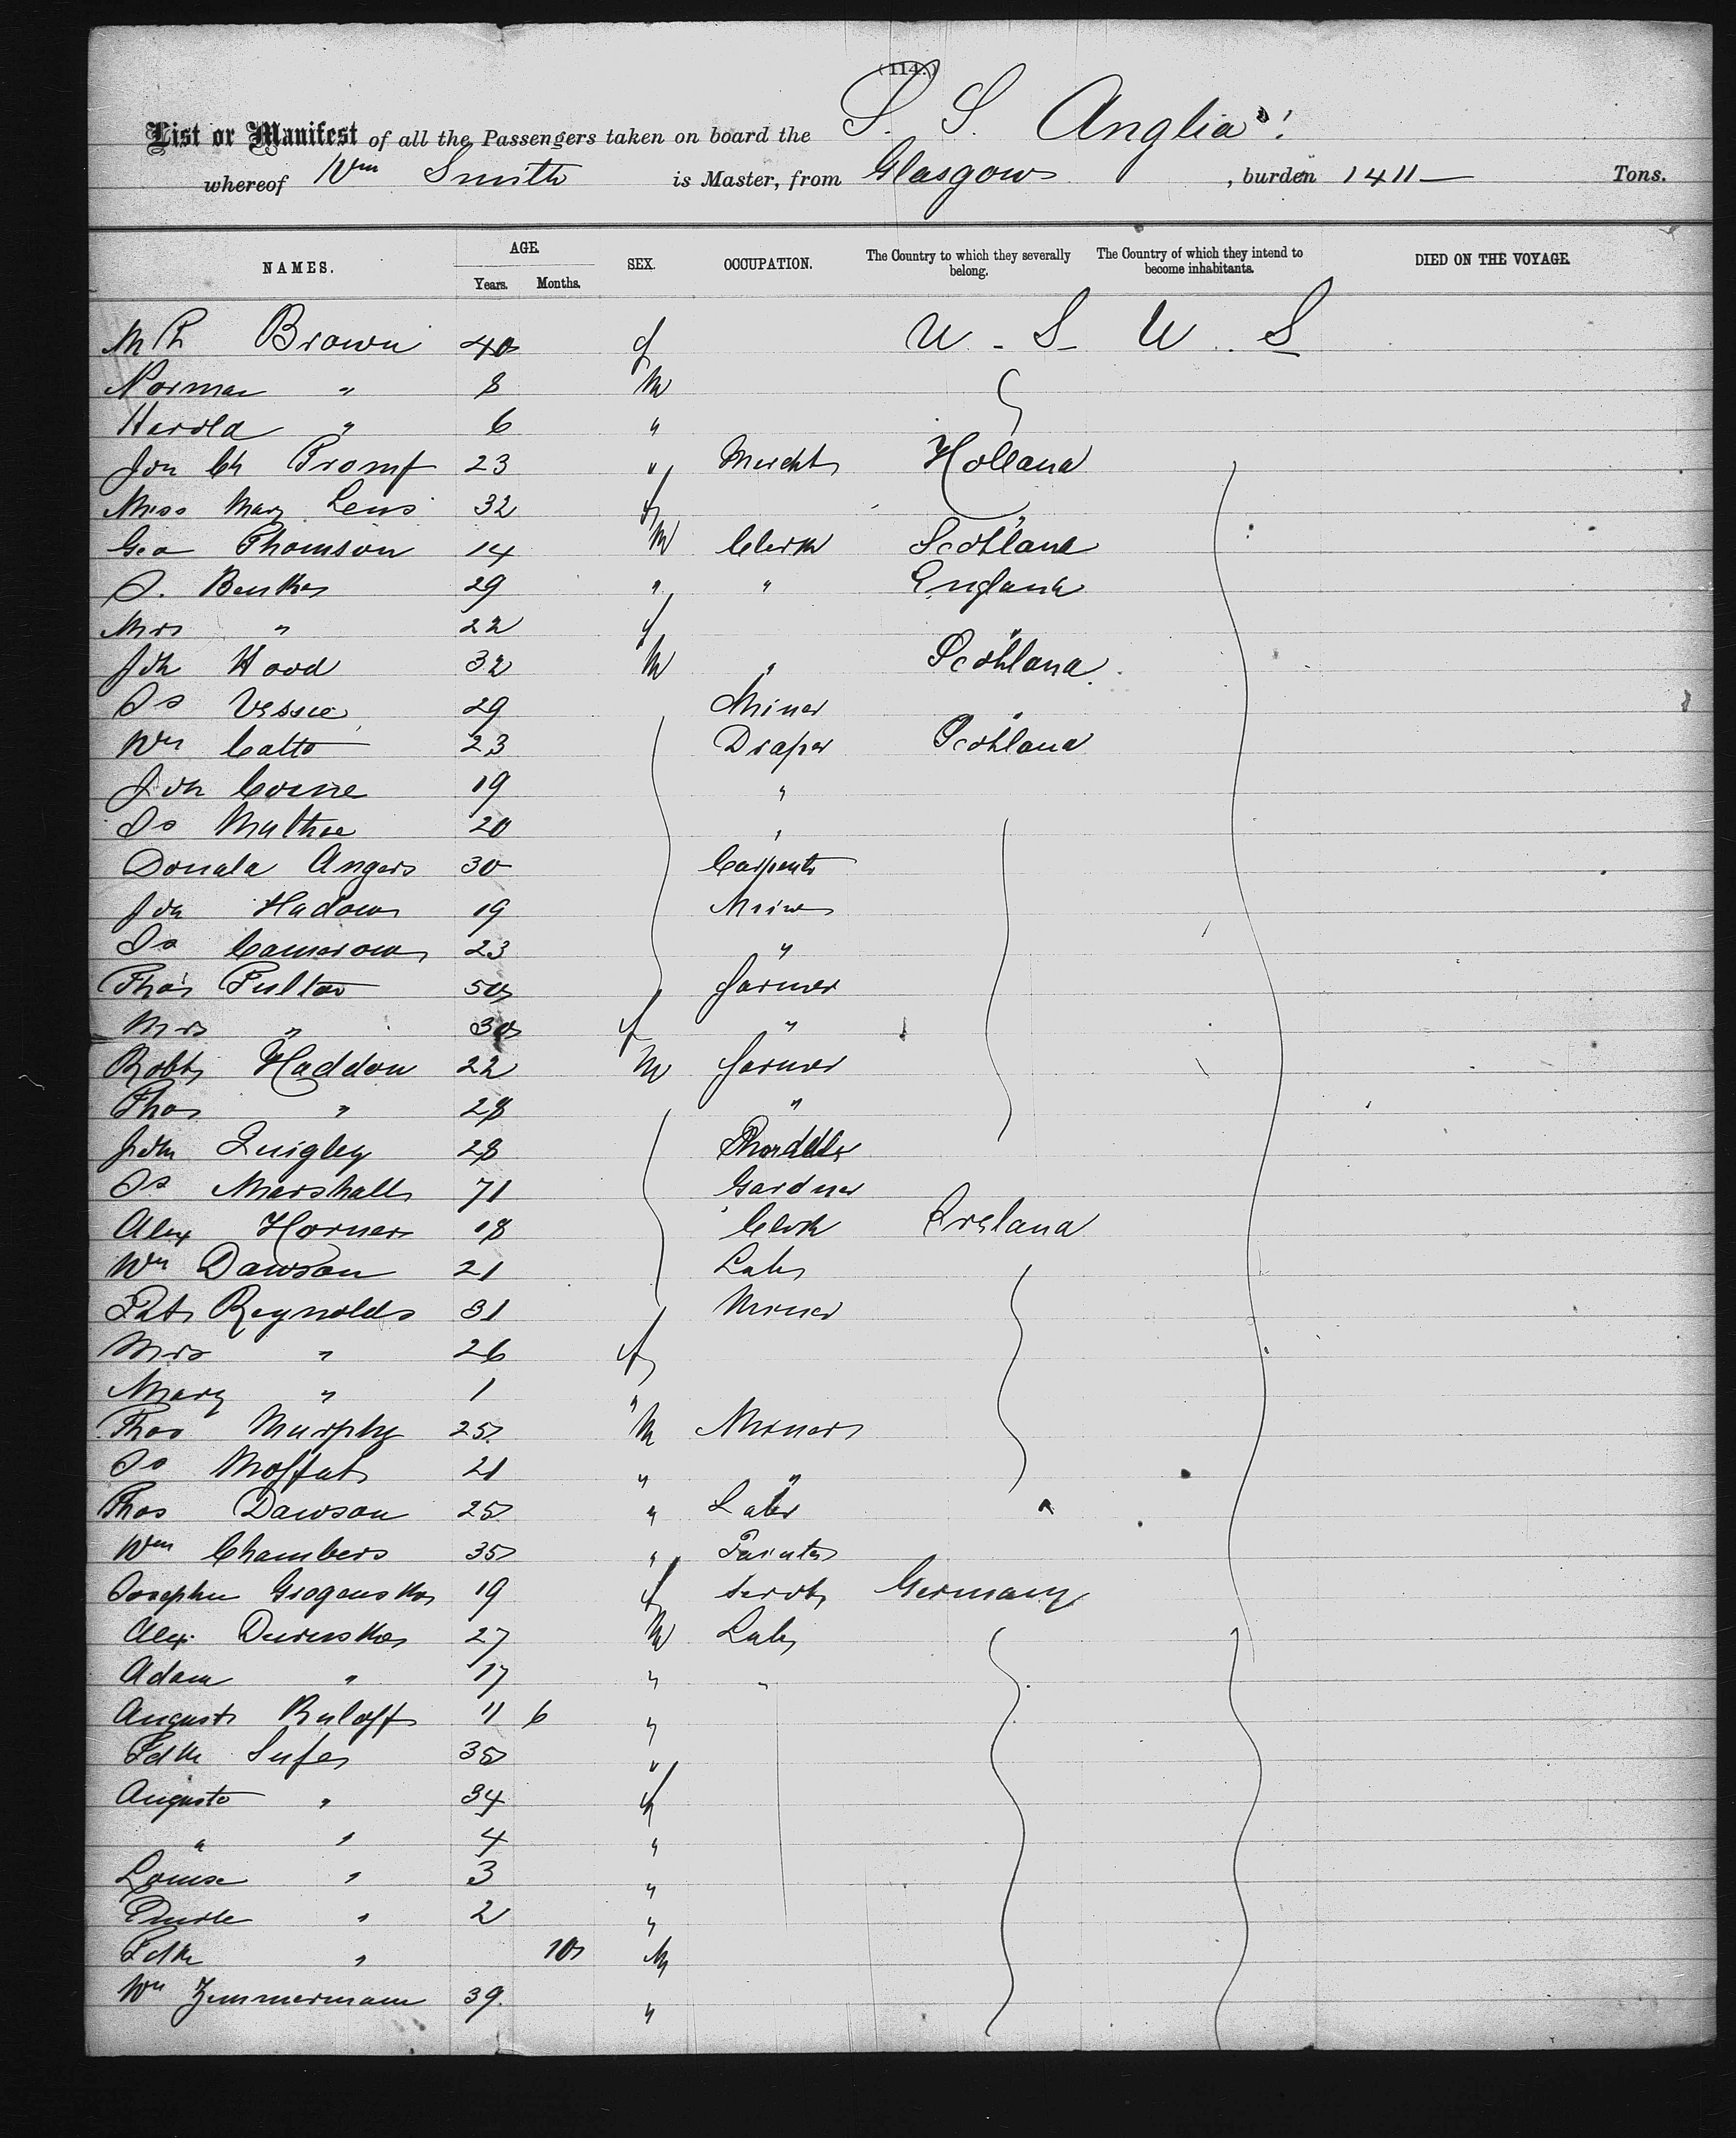 (114.)
List or Manifest of all the Passengers taken on board the S. S. Anglia
whereof Wm Smith is Master, from Glasgow , burden 1411 Tons.
NAMES. AGE. Years. Months. SEX. OCCUPATION. The Country to which they severally belong. The Country of which they intend to become inhabitants. DIED ON THE VOYAGE.
Brown 40 f U-S- U.S
Norman " 8 M
Harold " 6 "
Jon Ch 23 " Mercht Holland
Miss Mary 32 f
Geo Thomson 14 M Clerk Scotland
29 " " England
Mrs " 22 f
Jon Hood 32 M " Scotland
Js 29 Miner "
Wm Catto 23 Draper Scotland
Jon 19 "
Js 20 "
Donald Angus 30 Carpentr
Jon Hadow 19 Miner
Js Cameron 23 "
Thos Fulton 50 farmer
Mrs " 30 f "
Robt Haddon 22 M farmer
Thos " 28 "
John Quigley 28
Js Marshall 71 Gardner
Alex Horner 18 Clerk Ireland
Wm Dawson 21 Labr
Pat Reynolds 31 Miner
Mrs " 26 f
Mary " 1 "
Thos Murphy 25 M Miner
Js Moffat 21 " "
Thos Dawson 25 " Labr
Wm Chambers 35 " Painter
19 f Servt Germany
Alex 27 M Labr
Adam " 17 " "
August Ruloff 11 6 "
Fdk 35 "
Auguste " 34 f
" " 4 "
Louise " 3 "
" 2 "
Fdk " 10 M
Wm Zimmermann 39 "